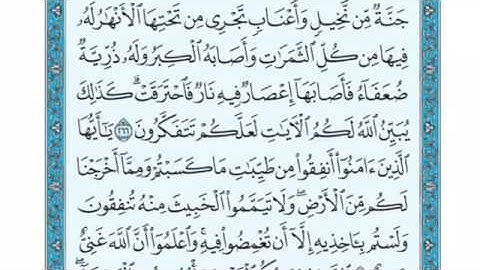 جَنَّةٌ مِّن نَّخِيلٍ وَأَعْنَابٍ تَجْرِى مِن تَحْتِهَا ٱلْأَنْهَٰرُ لَهُۥ
فِيهَا مِن كُلِّ ٱلثَّمَرَٰتِ وَأَصَابَهُ ٱلْكِبَرُ وَلَهُۥ ذُرِّيَّةٌ
ضُعَفَآءُ فَأَصَابَهَآ إِعْصَارٌ فِيهِ نَارٌ فَٱحْتَرَقَتْ ۗ كَذَٰلِكَ
يُبَيِّنُ ٱللَّهُ لَكُمُ ٱلْءَايَٰتِ لَعَلَّكُمْ تَتَفَكَّرُونَ ٢٦٦ يَٰٓأَيُّهَا
ٱلَّذِينَ ءَامَنُوٓا۟ أَنفِقُوا۟ مِن طَيِّبَٰتِ مَا كَسَبْتُمْ وَمِمَّآ أَخْرَجْنَا
لَكُم مِّنَ ٱلْأَرْضِ ۖ وَلَا تَيَمَّمُوا۟ ٱلْخَبِيثَ مِنْهُ تُنفِقُونَ
وَلَسْتُم بِـَٔاخِذِيهِ إِلَّآ أَن تُغْمِضُوا۟ فِيهِ ۚ وَٱعْلَمُوٓا۟ أَنَّ ٱللَّهَ غَنِىٌّ